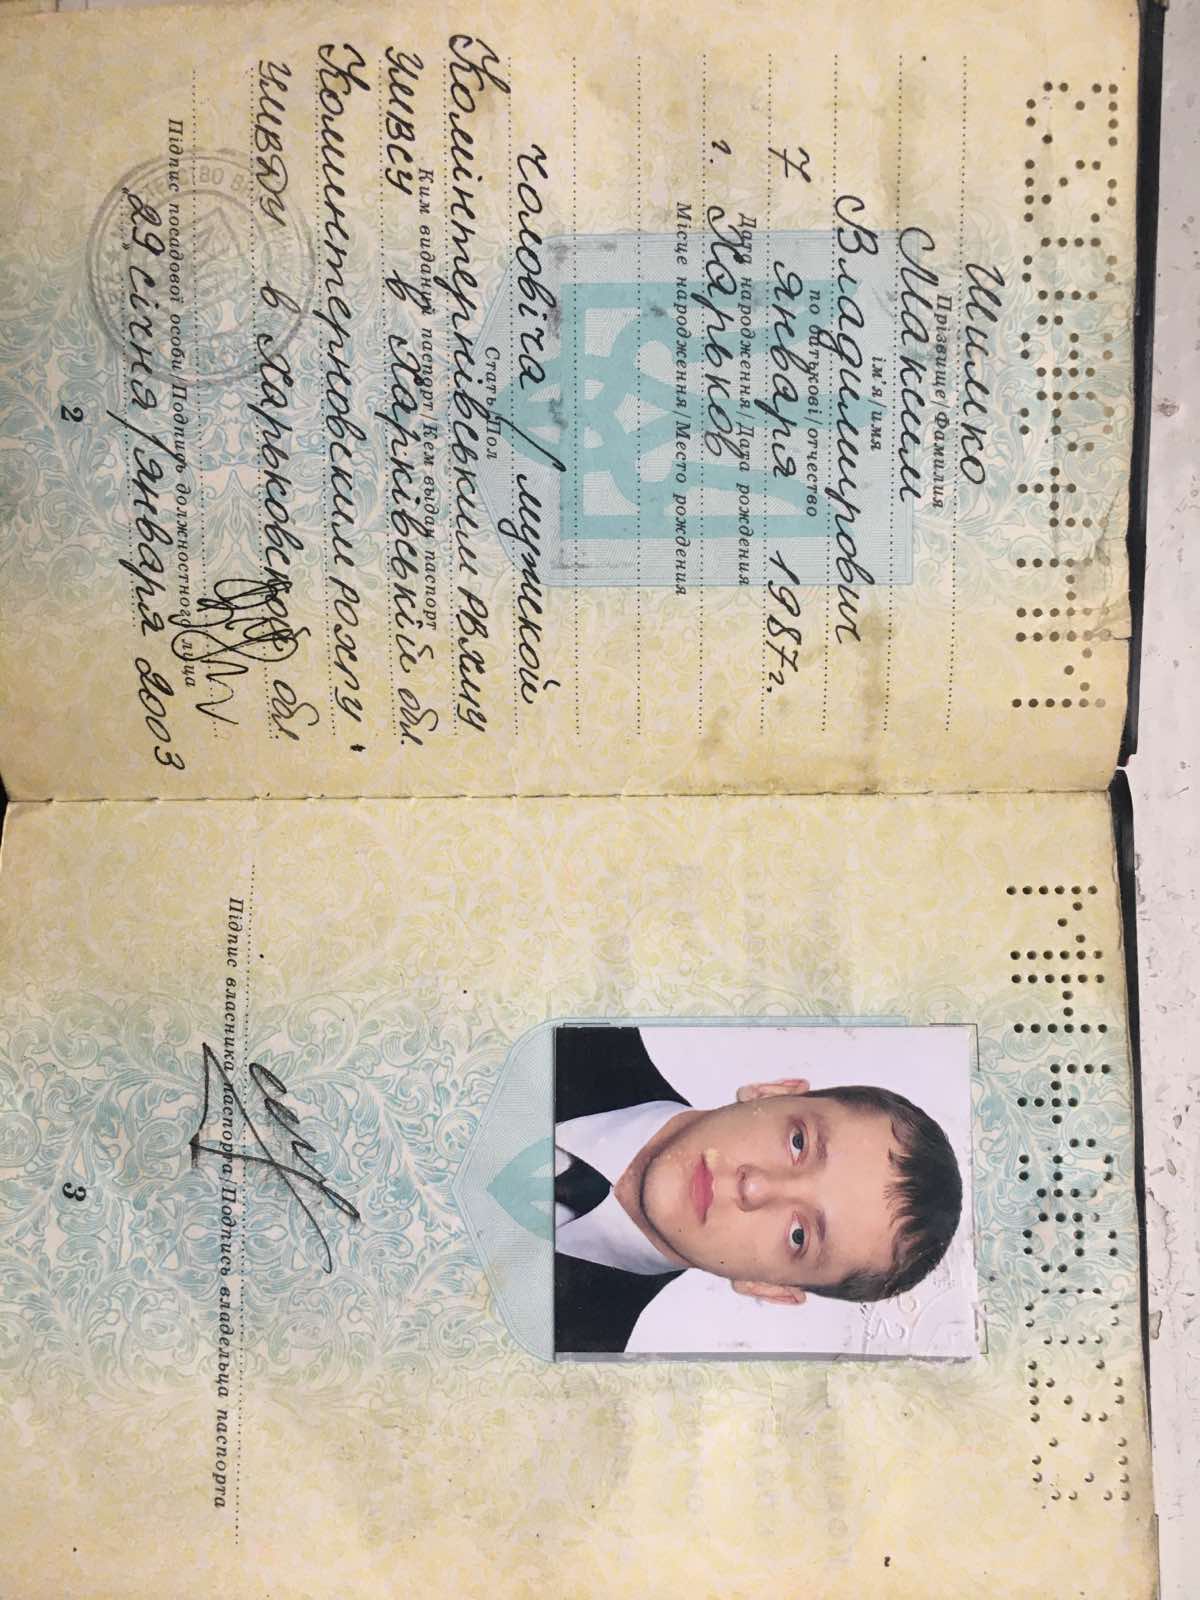 Шимко
Прізвище/Фамилия
Максим
ім'я/имя
Владимирович
по батькові/отчество
7 января 1987 г.
Дата народження/Дата рождения
г. Харьков
Місце народження/Место рождения
чоловіча/мужской
Стать/Пол
Комінтернівським РВ ХМУ
Ким виданий паспорт/Кем выдан паспорт
УМВСУ в Харківській обл.
Коминтерновским РО ХГУ
УМВДУ в Харьковской обл.
Підпис посадової особи/Подпись должностного лица
"29" січня/января 2003
2
Підпис власника паспорта/Подпись владельца паспорта
3